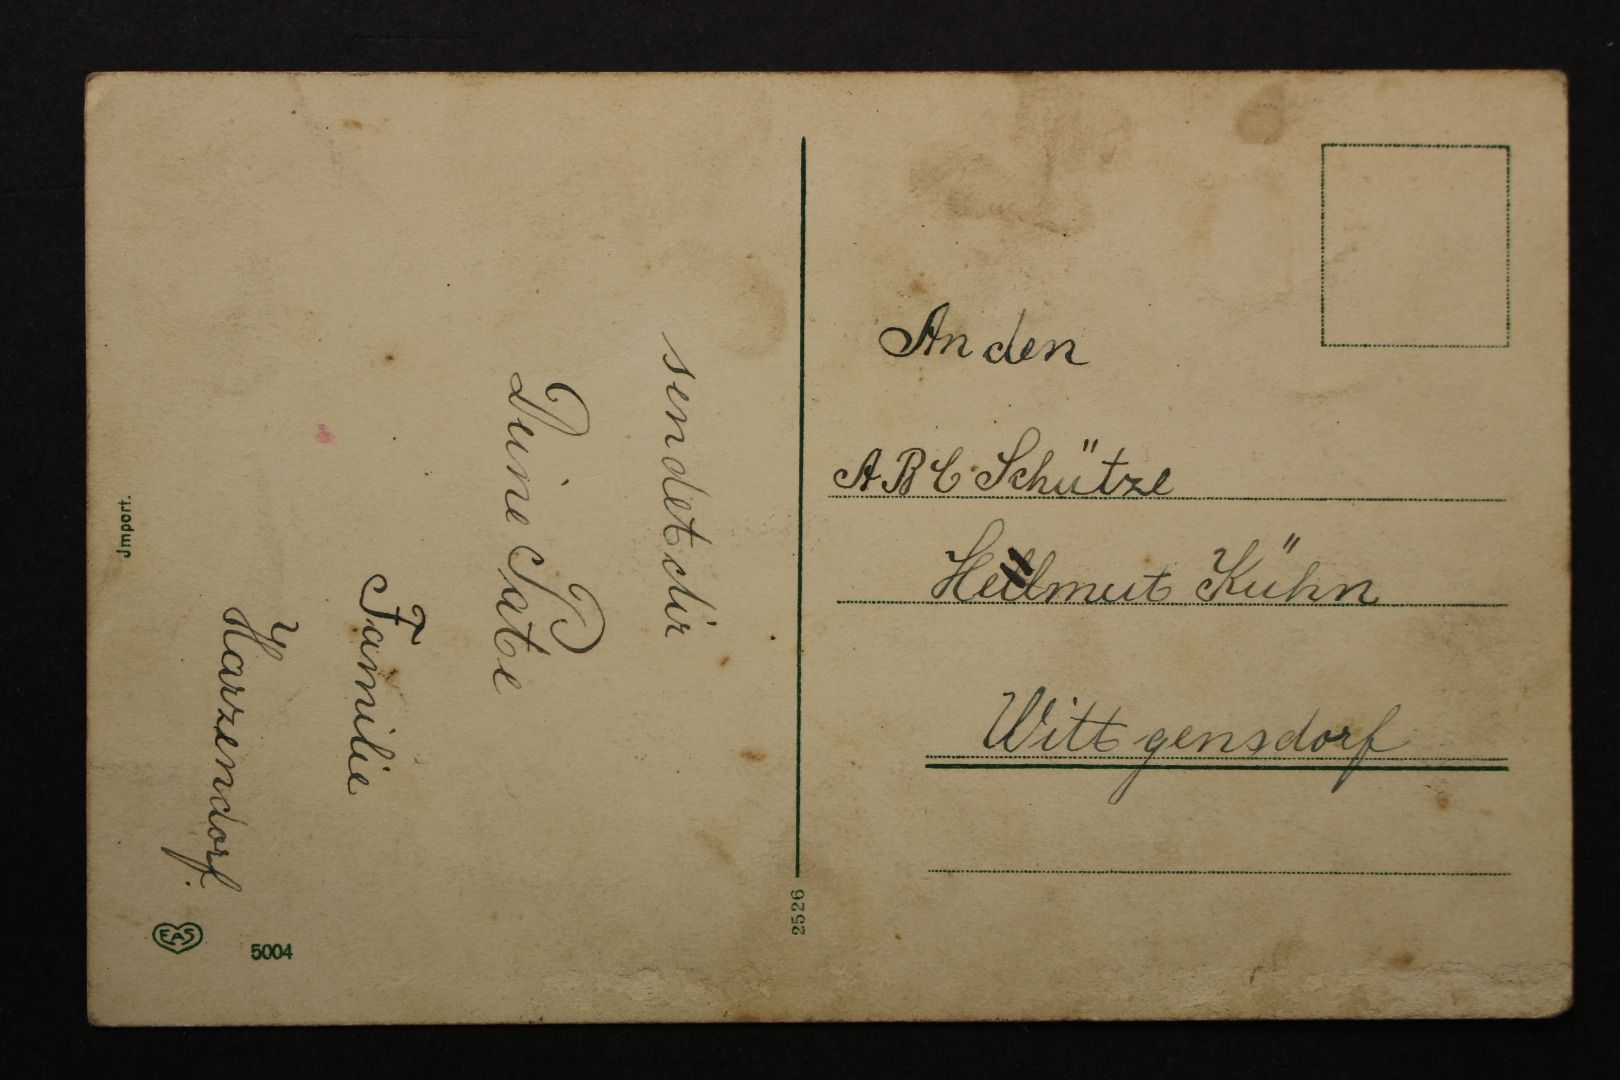 sendet dir
Deine Pate
Familie
Harzendorf.
Jmport.
EAS
5004
2526
An den
ABC Schütze
Hellmut Kühn
Wittgensdorf